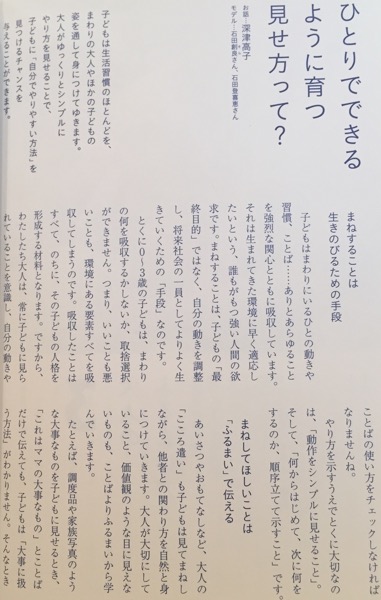 ひとりでできる
ように育つ
見せ方って?
お話―深津高子
モデル―石田創良さん、石田登喜恵さん
子どもは生活習慣のほとんどを、
まわりの大人やほかの子どもの
姿を通して身につけてゆきます。
大人がゆっくりとシンプルに
やり方を見せることで、
子どもに「自分でやりやすい方法」を
見つけるチャンスを
与えることができます。
まねすることは
生きのびるための手段
子どもはまわりにいるひとの動きや
習慣、ことば……ありとあらゆること
を強烈な関心とともに吸収しています。
それは生まれてきた環境に早く適応し
たいという、誰もがもつ強い人間の欲
求です。まねすることは、子どもの「最
終目的」ではなく、自分の動きを調整
し、将来社会の一員としてよりよく生
きていくための「手段」なのです。
とくに0〜3歳の子どもは、まわり
の何を吸収するかしないか、取捨選択
ができません。つまり、いいことも悪
いことも、環境にある要素すべてを吸
収してしまうのです。吸収したことは
すべて、のちに、その子どもの人格を
形成する材料となります。ですから、
わたしたち大人は、常に子どもに見ら
れていることを意識し、自分の動きや
ことばの使い方をチェックしなければ
なりませんね。
やり方を示すうえでとくに大切なの
は、「動作をシンプルに見せること」。
そして、「何からはじめて、次に何を
するのか、順序立てて示すこと」です。
まねしてほしいことは
「ふるまい」で伝える
あいさつやおもてなしなど、大人の
「こころ遣い」も子どもは見てまねし
ながら、他者との関わり方を自然と身
につけていきます。大人が大切にして
いること、価値観のような目に見えな
いものも、ことばよりふるまいから学
んでいきます。
たとえば、調度品や家族写真のよう
な大事なものを子どもに見せるとき、
「これはママの大事なもの」とことば
だけで伝えても、子どもは「大事に扱
う方法」がわかりません。そんなとき